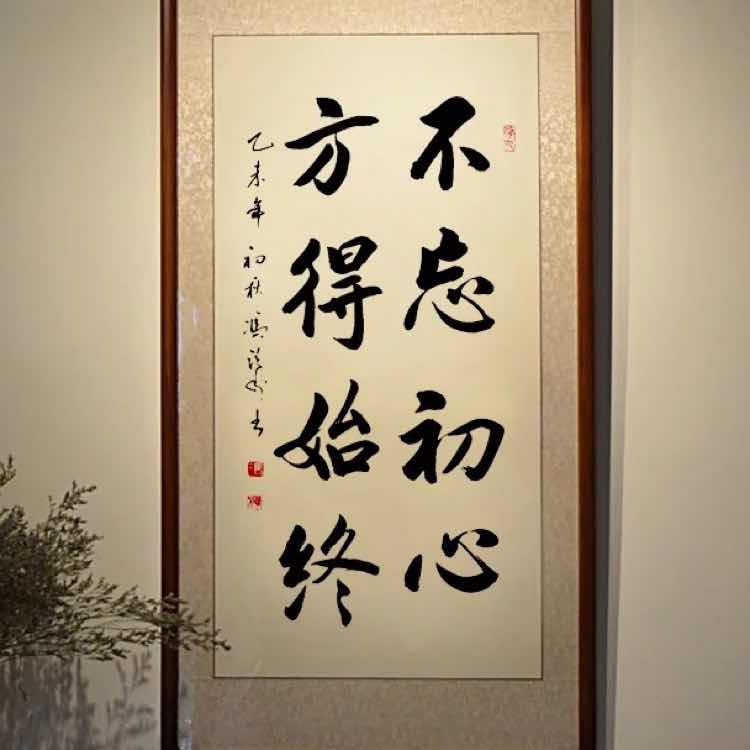 不忘初心
方得始终
乙未年初秋冯